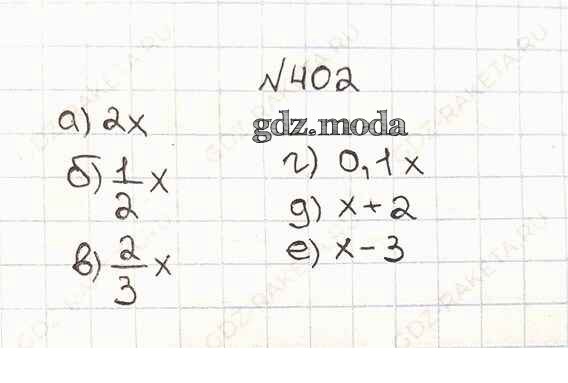 №402
gdz.moda
а) 2x
б) 1/2 x
в) 2/3 x
г) 0,1x
д) x + 2
е) x - 3
GDZ-RAKETA.RU
GDZ-RAKETA.RU
GDZ-RAKETA.RU
GDZ-RAKETA.RU